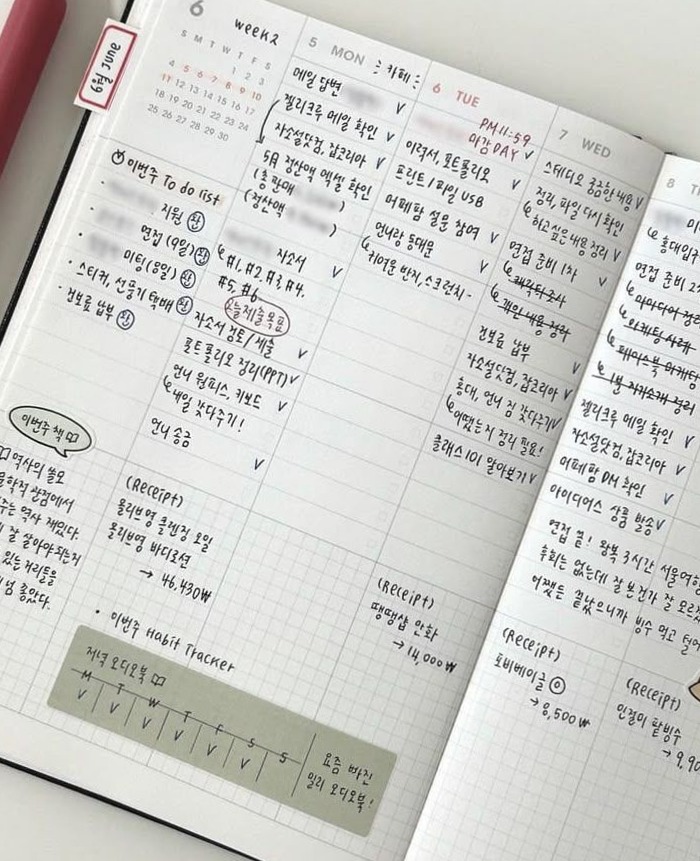 6월 June
6
week2
S M T W T F S
1 2 3
4 5 6 7 8 9 10
11 12 13 14 15 16 17
18 19 20 21 22 23 24
25 26 27 28 29 30
이번주 To do list
· 지원 완
· 면접 (9일) 완
· 미팅(8일) 완
· 스티커, 선풍기 택배 완
· 건보료 납부 완
이번주 책
역사의 쓸모
학적 관점에서
주는 역사 재밌다.
잘 살아야 되는지
있는 저리들을
넘 좋았다.
5 MON
카페
메일 답변 V
젤리크루 메일 확인 V
자소설닷컴, 잡코리아 V
5月 정산액 엑셀 확인
(총 판매 )
(정산액 )
자소서 V
#1, #2, #3, #4,
#5, #6
오늘 제출 목표
자소서 검토/제출 V
포트폴리오 정리(PPT) V
언니 원피스, 키보드 V
내일 갖다주기!
언니 송금 V
(Receipt)
올리브영 클렌징 오일
올리브영 바디로션
→ 46,430₩
6 TUE
PM 11:59
마감 DAY V
이력서, 포트폴리오 V
프린트 / 파일 USB
어패팜 설문 참여 V
언니랑 동대문 V
귀여운 반지, 스크런치~
(Receipt)
땡땡샵 안화
→ 14,000₩
7 WED
스터디오 궁금한 내용 V
정리, 파일 다시 확인
하고 싶은 내용 정리 V
면접 준비 1차 V
캐릭터 조사
개인 내용 정리
건보료 납부 V
자소설닷컴, 잡코리아 V
홍대, 언니 짐 갖다주기 V
어땠는지 정리 필요!
클래스101 알아보기 V
(Receipt)
포비베이글
→ 8,500₩
8 T
홍대입구
면접 준비 2
아이디어 정리
마케팅 사례
페이스북 마케팅
1분 자기소개 정리
젤리크루 메일 확인 V
자소설닷컴, 잡코리아 V
어패팜 DM 확인 V
아이디어스 상품 발송 V
면접 끝! 왕복 3시간 서울여
후회는 없는데 잘 본건가 잘 모르
어쨌든 끝났으니까 빙수 먹고 털어
(Receipt)
인절미 팥빙수
→ 9,90
· 이번주 Habit Tracker
저녁 오디오북
M T W T F S S
V V V V V V
요즘 빠진
밀리 오디오북!